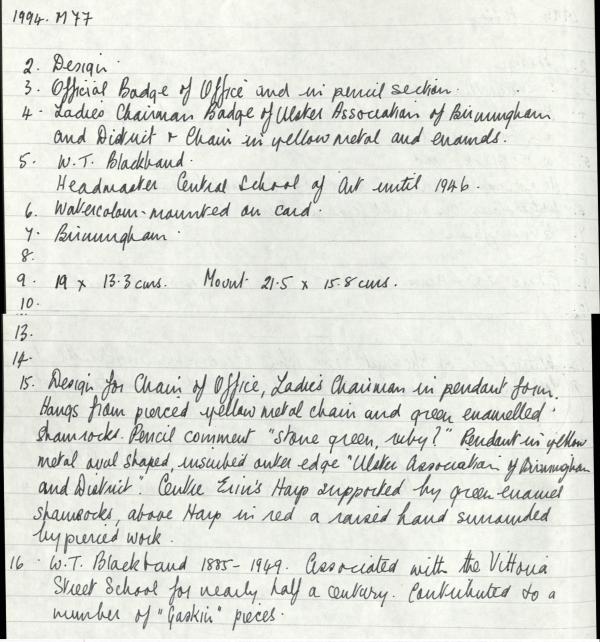 1994. M77
2. Design.
3. Official Badge of Office and in pencil section.
4. Ladies Chairman Badge of Ulster Association of Birmingham
and District & Chain in yellow metal and enamels.
5. W.T. Blackband.
Headmaster Central School of Art until 1946.
6. Watercolour-mounted on card.
7. Birmingham.
8.
9. 19 x 13.3 cms. Mount 21.5 x 15.8 cms.
10.
13.
14.
15. Design for Chain of Office, Ladies Chairman in pendant form.
Hangs from pierced yellow metal chain and green enamelled
shamrocks. Pencil comment "Stone green, ruby?" Pendant in yellow
metal oval shaped, inscribed outer edge "Ulster Association of Birmingham
and District". Centre Erin's Harp supported by green enamel
shamrocks, above Harp in red a raised hand surrounded
by pierced work.
16. W.T. Blackband 1885-1949. Associated with the Vittoria
Street School for nearly half a century. Contributed to a
number of "Gaskin" pieces.